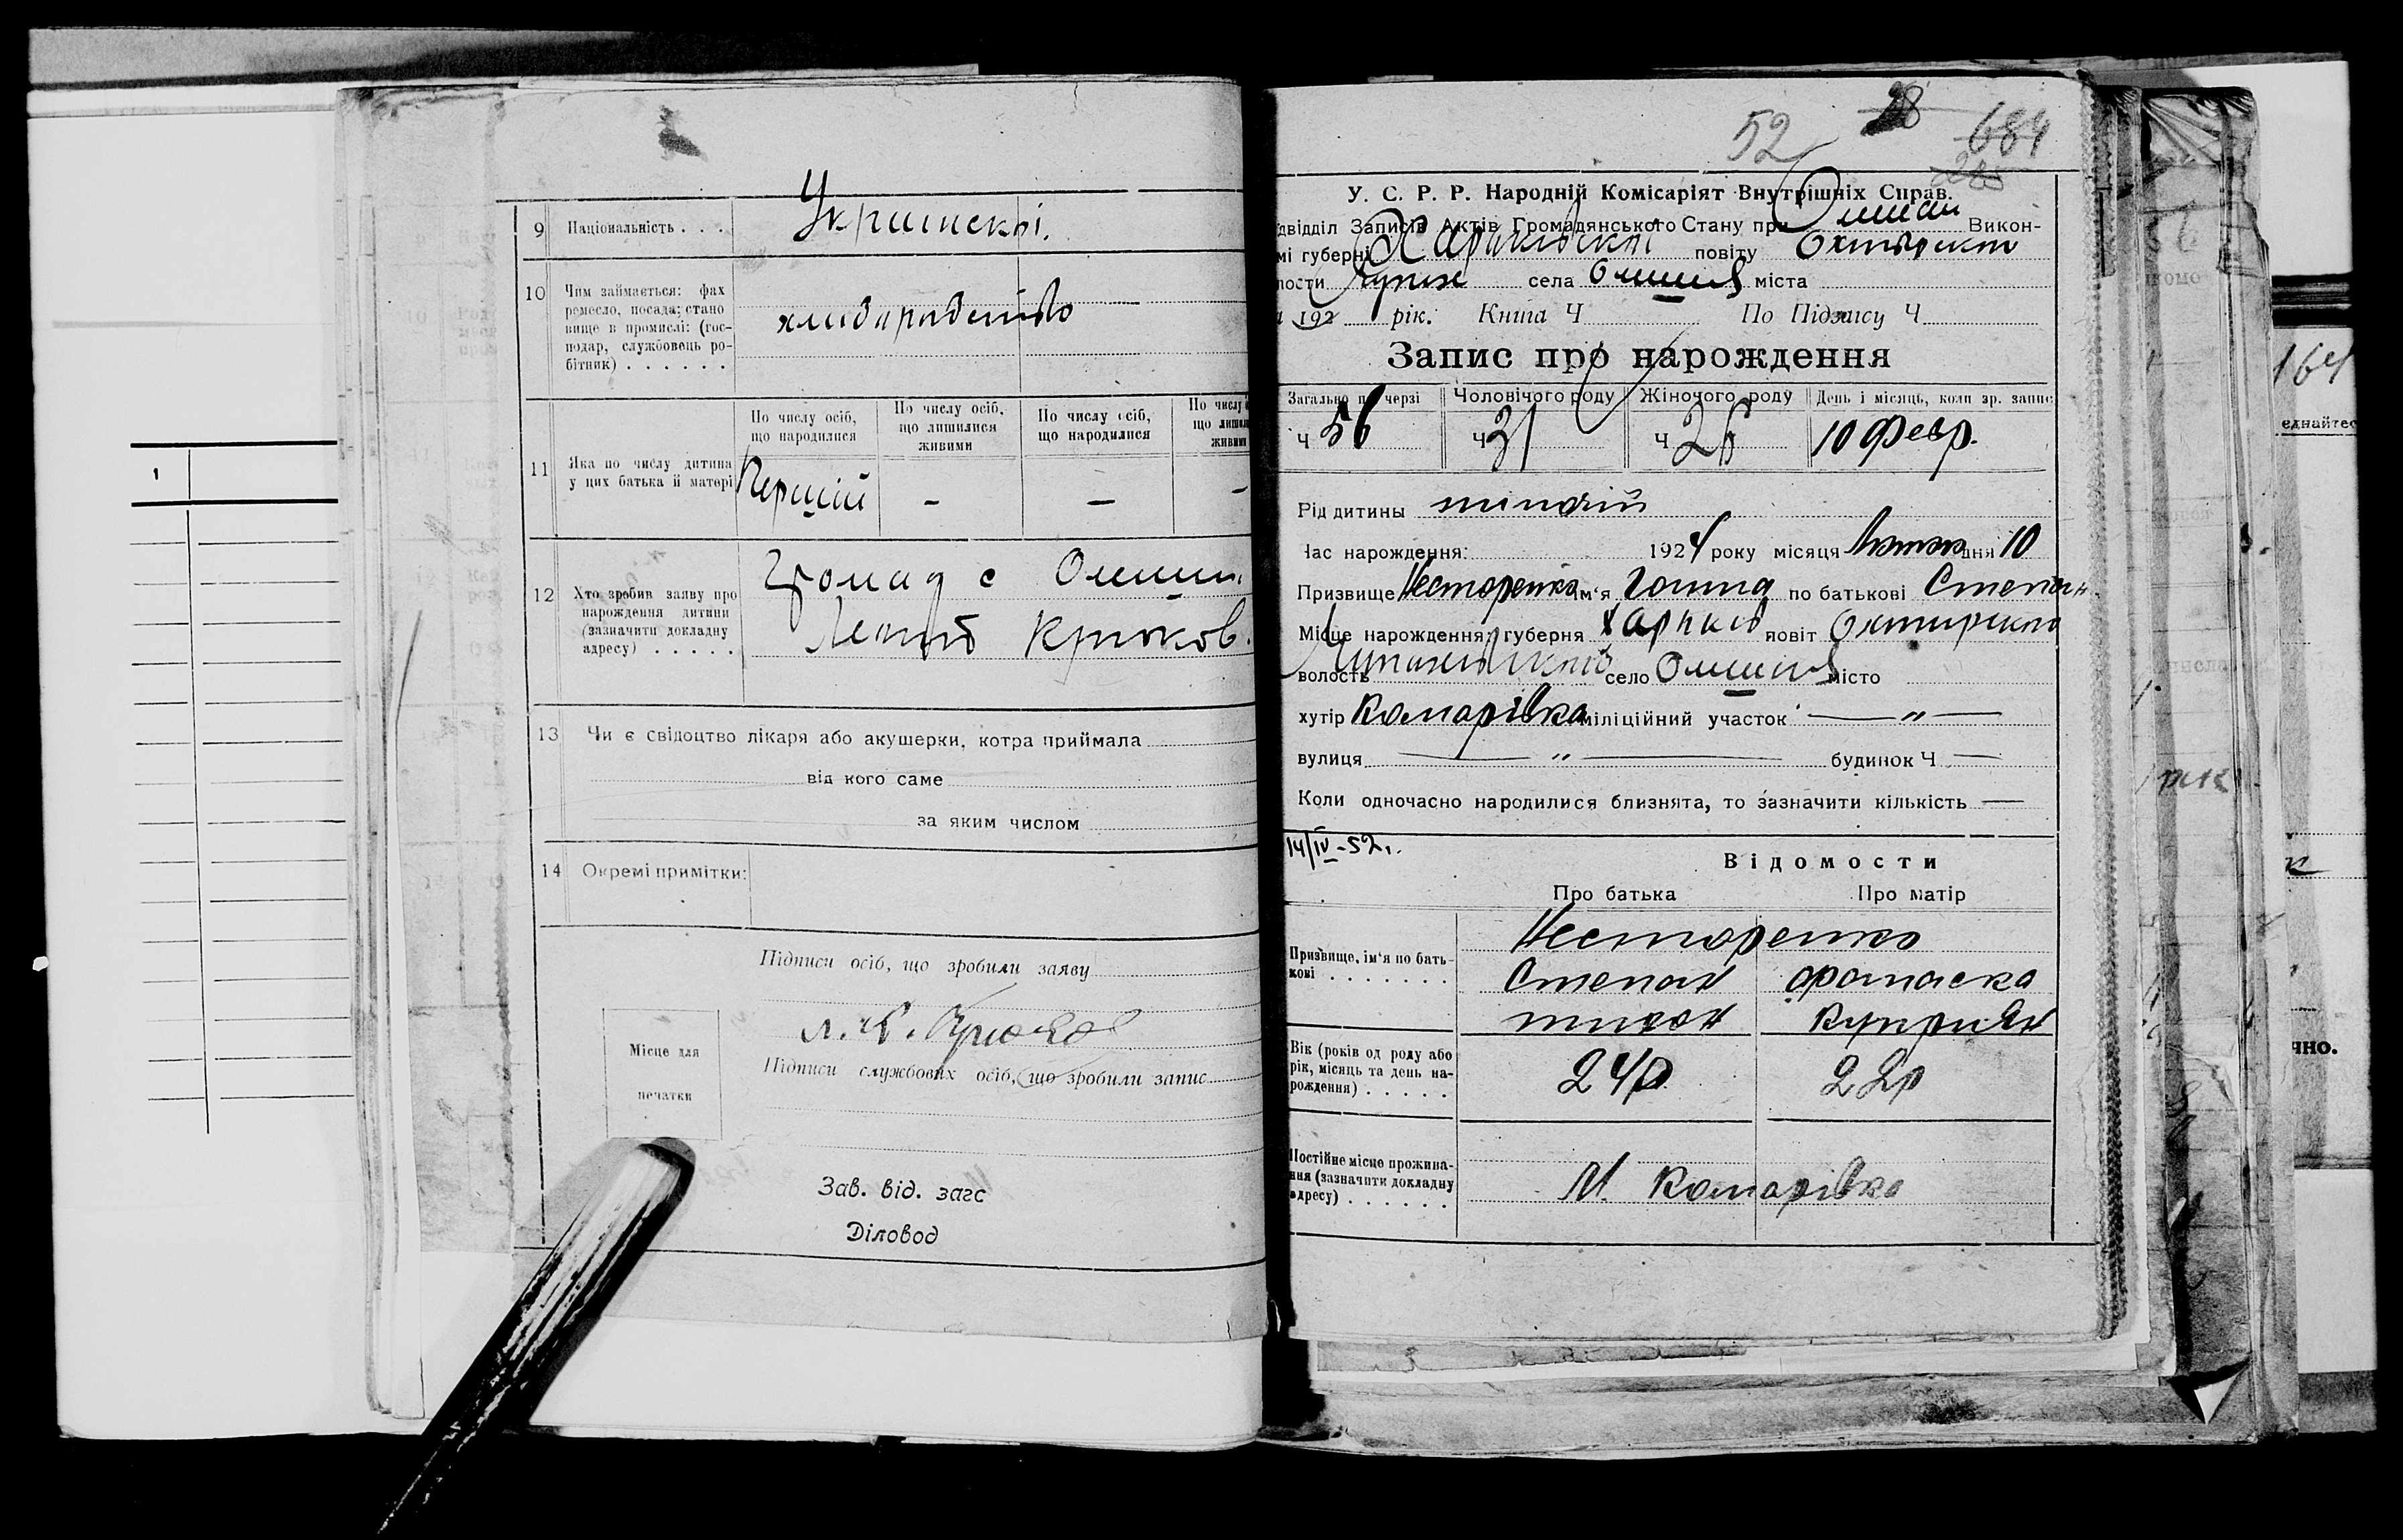 9 Національність . . . Украінскві.
10 Чим займається: фах
ремесло, посада; стано
вище в промислі: (гос-
подар, службовець ро-
бітник) . . . . . .
хлиборобство
По числу осіб, що народилися
По числу осіб, що лишилися живими
По числу осіб, що народилися
По числу
що лиши
живими
11 Яка по числу дитина
у цих батька й матері
Перший - - -
12 Хто зробив заяву про
народження дитини
(зазначити докладну
адресу) . . . . .
Громад с Олеши
Крюков.
13 Чи є свідоцтво лікаря або акушерки, котра приймала
від кого саме
за яким числом
14 Окремі примітки:
Підписи осіб, що зробили заяву
Л. К. Крюков
Місце для
печатки
Підписи службових осіб, що зробили запис
Зав. від. загс
Діловод
52 28 684
У. С. Р. Р. Народній Комісаріят Внутрішніх Справ.
двідділ Записів Актів Громадянського Стану при Олешан Викон-
мі губерні Харьківскої повіту Охтирского
ности села Олешня міста
192 рік. Книга Ч По Підпису Ч
Запис про нарождення
Загально по черзі Чоловічого роду Жіночого роду День і місяць, коли зр. запис
ч 56 ч 31 ч 26 10 Февр.
Рід дитини жіночій
Час нарождення: 1924 року місяця Лютого дня 10
Призвище Несторенко ім'я Ганна по батькові Степан
Місце нарождення: губерня Харьків повіт Охтирского
волость село Олешня місто
хутір Комарівка міліційний участок — " —
вулиця — " — будинок Ч —
Коли одночасно народилися близнята, то зазначити кількість —
14/IV-52г.
Відомости
Про батька Про матір
Призвище, ім'я по бать-
кові . . . . . . .
Несторенко
Степан Фанаска
тихон Куприян
Вік (років од роду або
рік, місяць та день на-
родження) . . . . .
24р 22р
Постійне місце прожива-
ння (зазначити докладну
адресу) . . . . . .
М. Комарівка
1
164
еднайтес
чно.